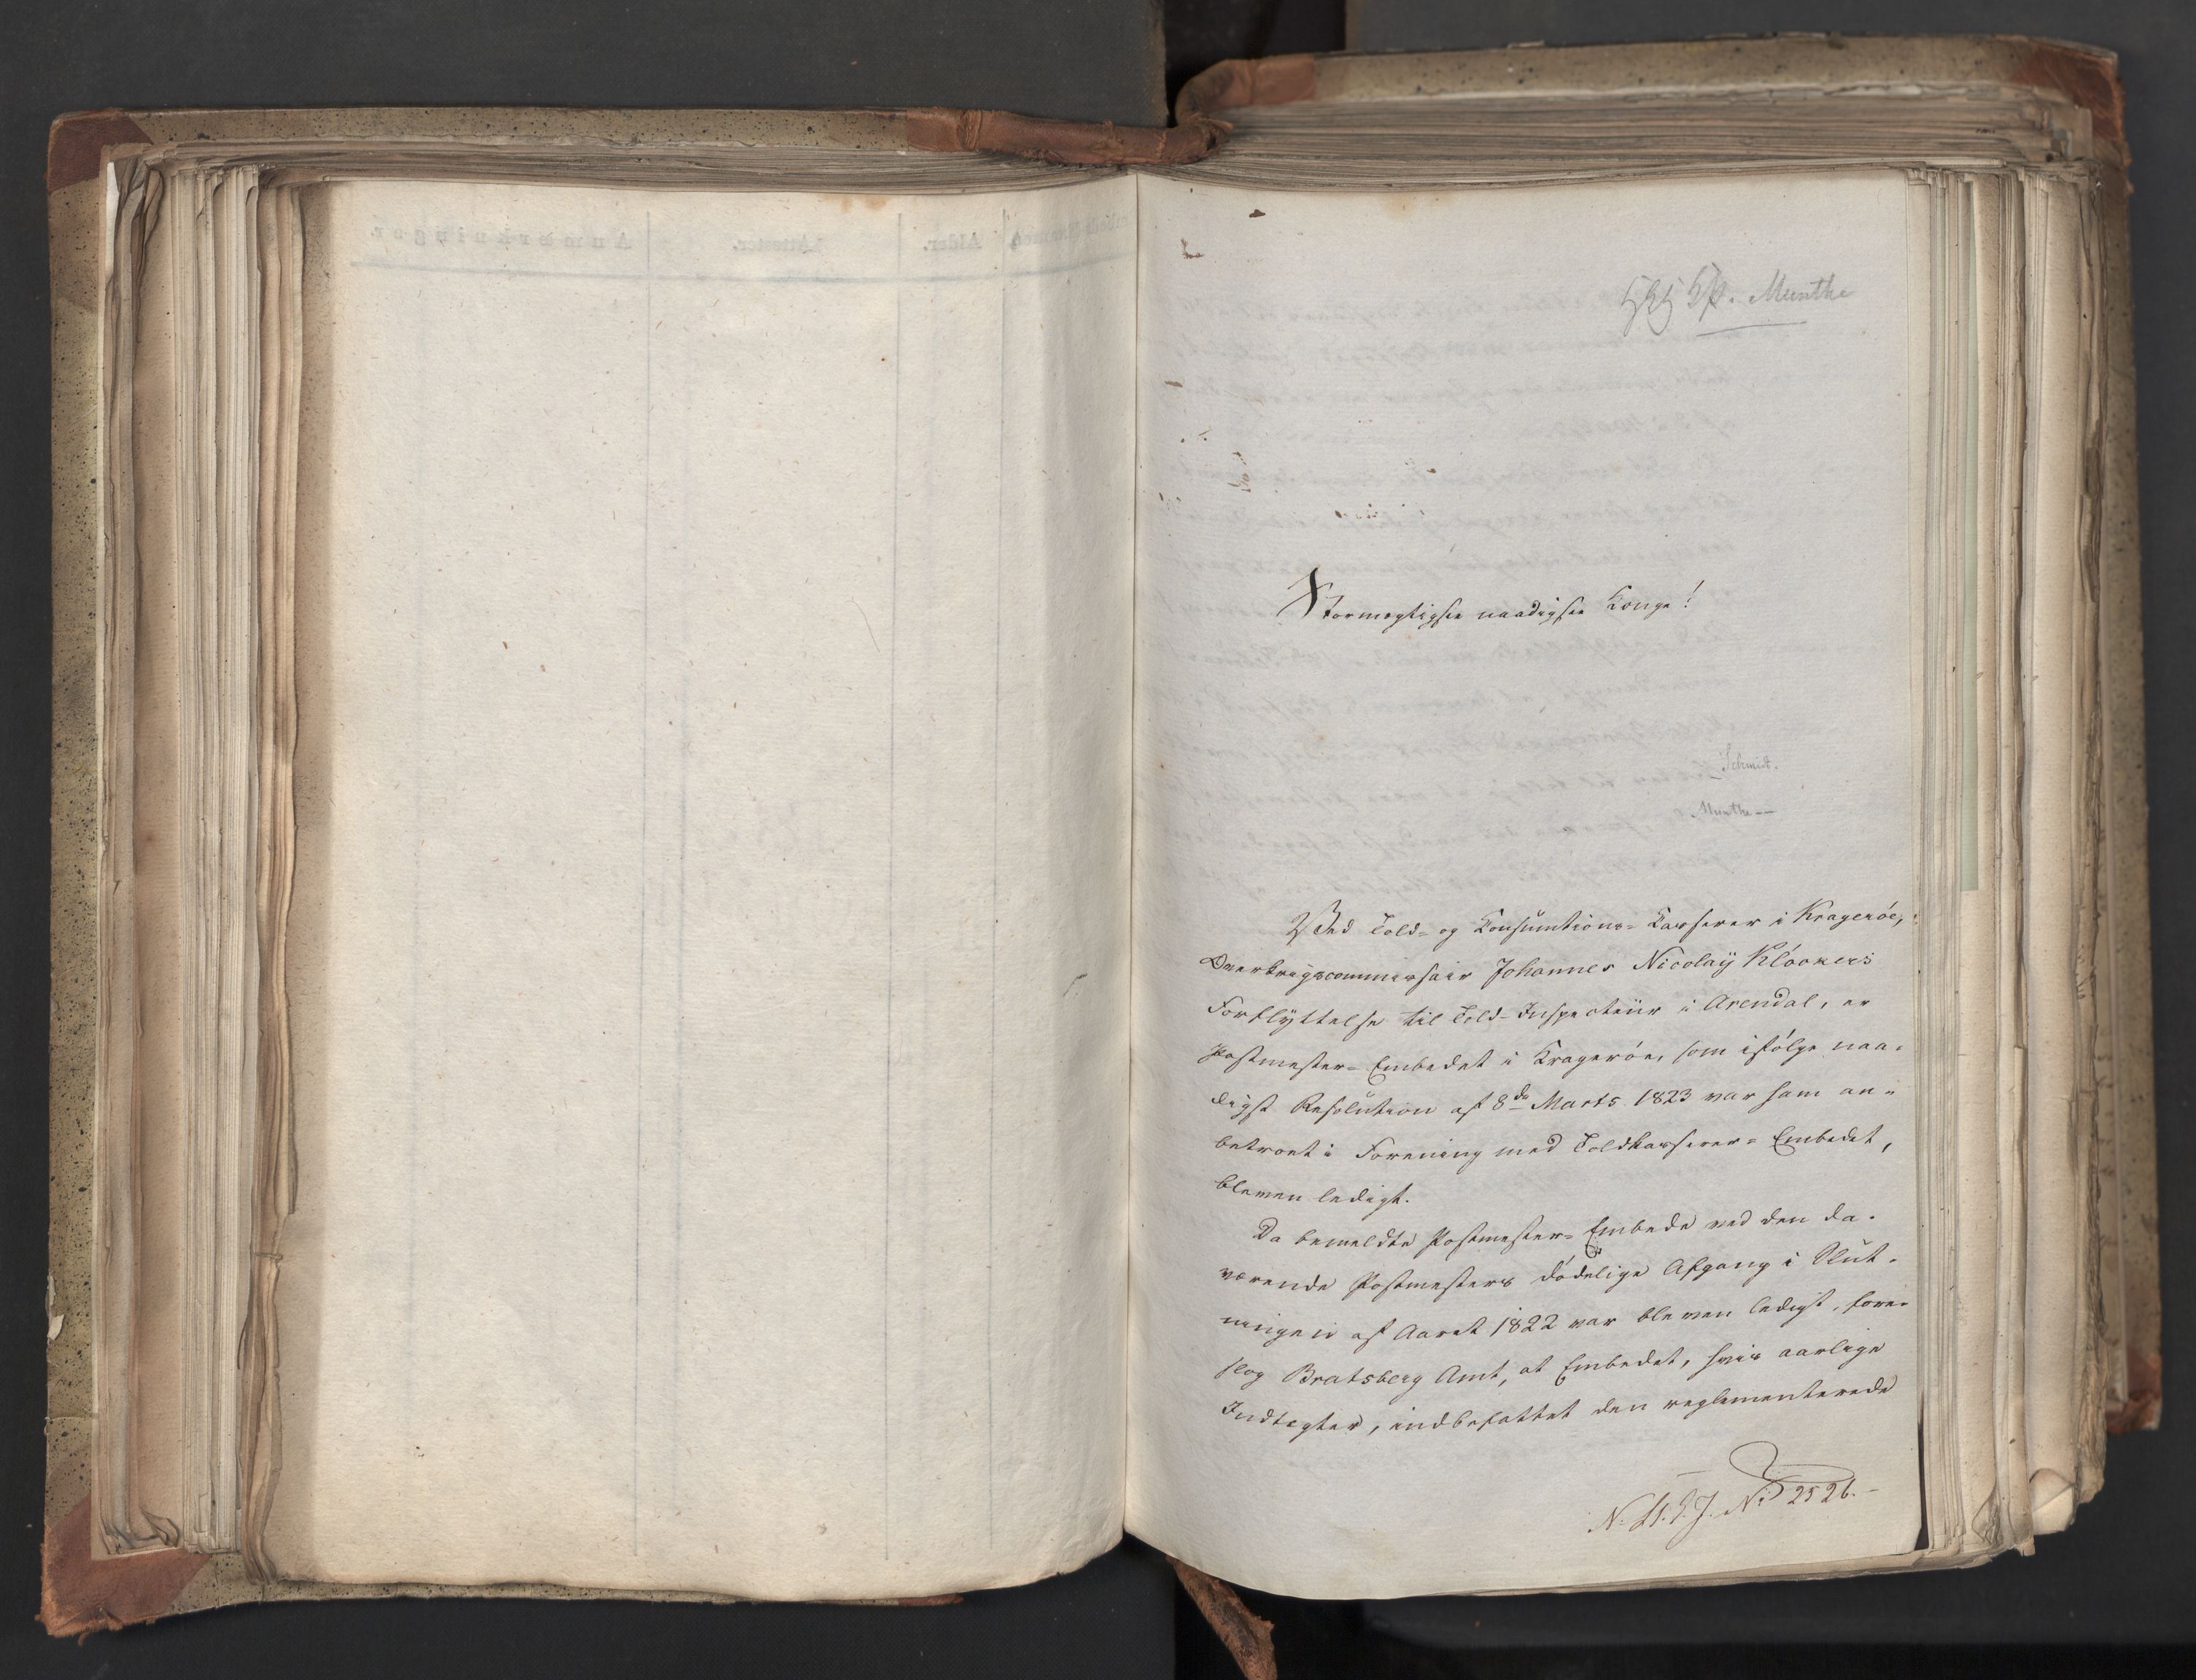 Munthe
Stormægtigste naadigste Konge!
Schmidt.
Munthe
Ved Told- og Consumtions-Casserer i Kragerøe,
Overkrigscommissair Johannes Nicolaÿ Klöckers
Forflÿttelse til Told-Inspecteur i Arendal, er
Postmester-Embedet i Kragerøe, som ifølge naa-
digst Resolution af 8de Marts 1823 var ham an-
betroet i Forening med Toldkasserer-Embedet,
bleven ledigt.
Da bemeldte Postmester-Embede ved den da-
værende Postmesters dødelige Afgang i Slut-
ningen af Aaret 1822 var bleven ledigt, fore-
slog Bratsberg Amt, at Embedet, hvis aarlige
Indtægter, indbefattet den reglementerede
No 2526.